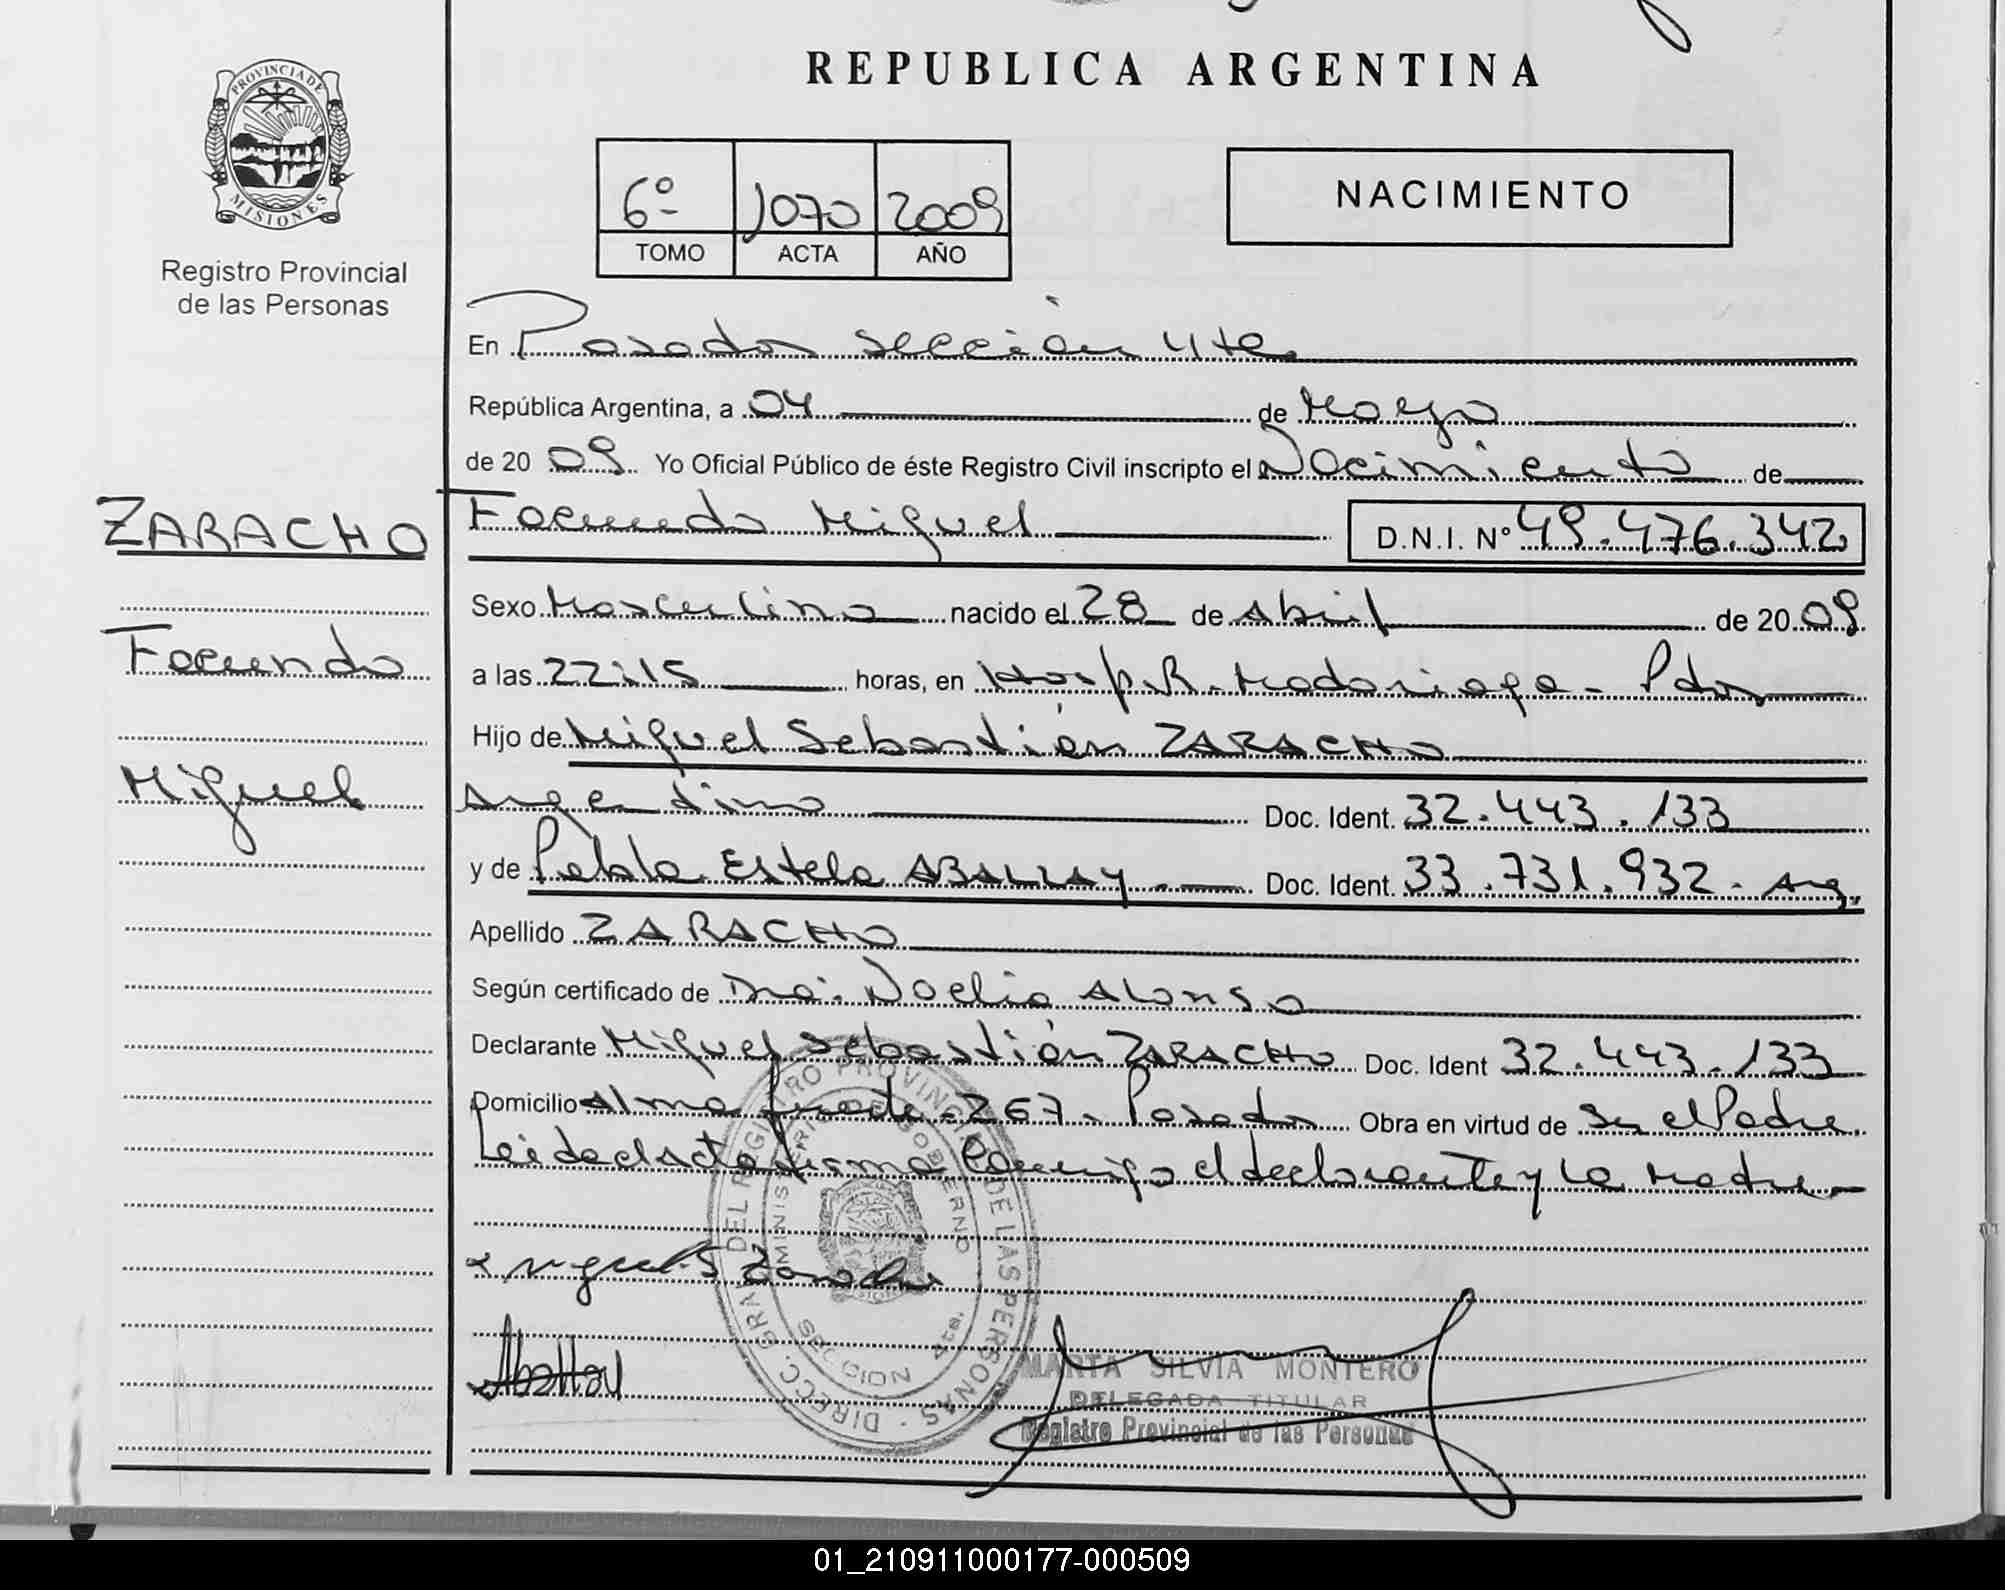 REPUBLICA ARGENTINA
PROVINCIA DE
MISIONES
Registro Provincial
de las Personas
6º 1070 2009
TOMO ACTA AÑO
NACIMIENTO
En Posadas sección 4ta
República Argentina, a 04 de Mayo
de 2009 Yo Oficial Público de éste Registro Civil inscripto el Nacimiento de
ZARACHO
Facundo
Miguel
Facundo Miguel D.N.I. Nº 49.476.342
Sexo Masculino nacido el 28 de Abril de 2009
a las 22:15 horas, en Hosp. R. Madariaga - Pdas
Hijo de Miguel Sebastián ZARACHO
Argentino Doc. Ident. 32.443.133
y de Estela ABALLAY Doc. Ident. 33.731.932 - Arg.
Apellido ZARACHO
Según certificado de Dra. Noelia Alonso
Declarante Miguel Sebastián ZARACHO Doc. Ident 32.443.133
Domicilio Alma fuerte - 267 - Posadas Obra en virtud de Ser el Padre
Leida el acta firma conmigo el declarante y la Madre
x Miguel S Zaracho
Aballay
DIRECC. GRAL. DEL REGISTRO PROVINCIAL DE LAS PERSONAS
MINISTERIO DE GOBIERNO
SECCION 4ta.
MARTA SILVIA MONTERO
DELEGADA TITULAR
Registro Provincial de las Personas
01_210911000177-000509